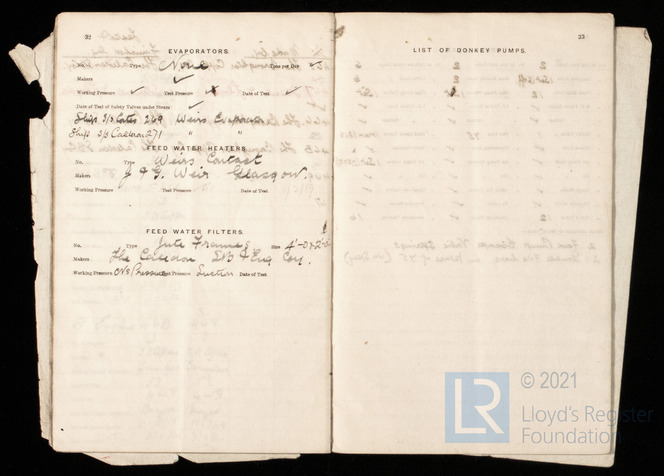 32
EVAPORATORS.
No. Type None Tons per Day ✓
Makers ✓
Working Pressure ✓ Test Pressure ✓ Date of Test ✓
Date of Test of Safety Valves under Steam ✓
Ships S/S Cortes 269 Weirs Evaporator
Ships S/S Calderon 271 " "
FEED WATER HEATERS.
No. Type Weirs Contact
Makers J & G. Weir Glasgow.
Working Pressure Test Pressure Date of Test
FEED WATER FILTERS.
No. Type Jute Frames Size 4'-0 x 2'-
Makers The Caledon SB & Eng Coy.
Working Pressure Test Pressure Suction Date of Test
33
LIST OF DONKEY PUMPS.
LR © 2021
Lloyd's Register
Foundation